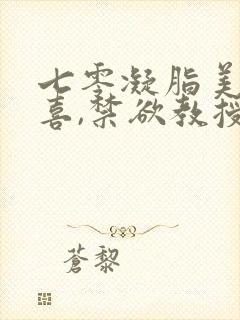 七零凝脂美
喜,禁欲教授
蒼黎